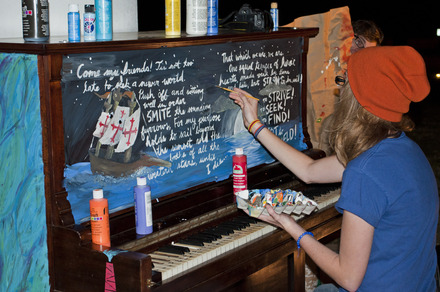 Come my friends! Tis not too
late to seek a newer world.
Push off and sitting
well in order
SMITE the sounding
furrows, for my purpose
holds to sail beyond
the sunset, and the
baths of all the
western stars, until
I die.
That which we are, we are
One equal temper of heroic
hearts, made weak by time
fate, but STRONG in will
to STRIVE!
SEEK!
FIND!